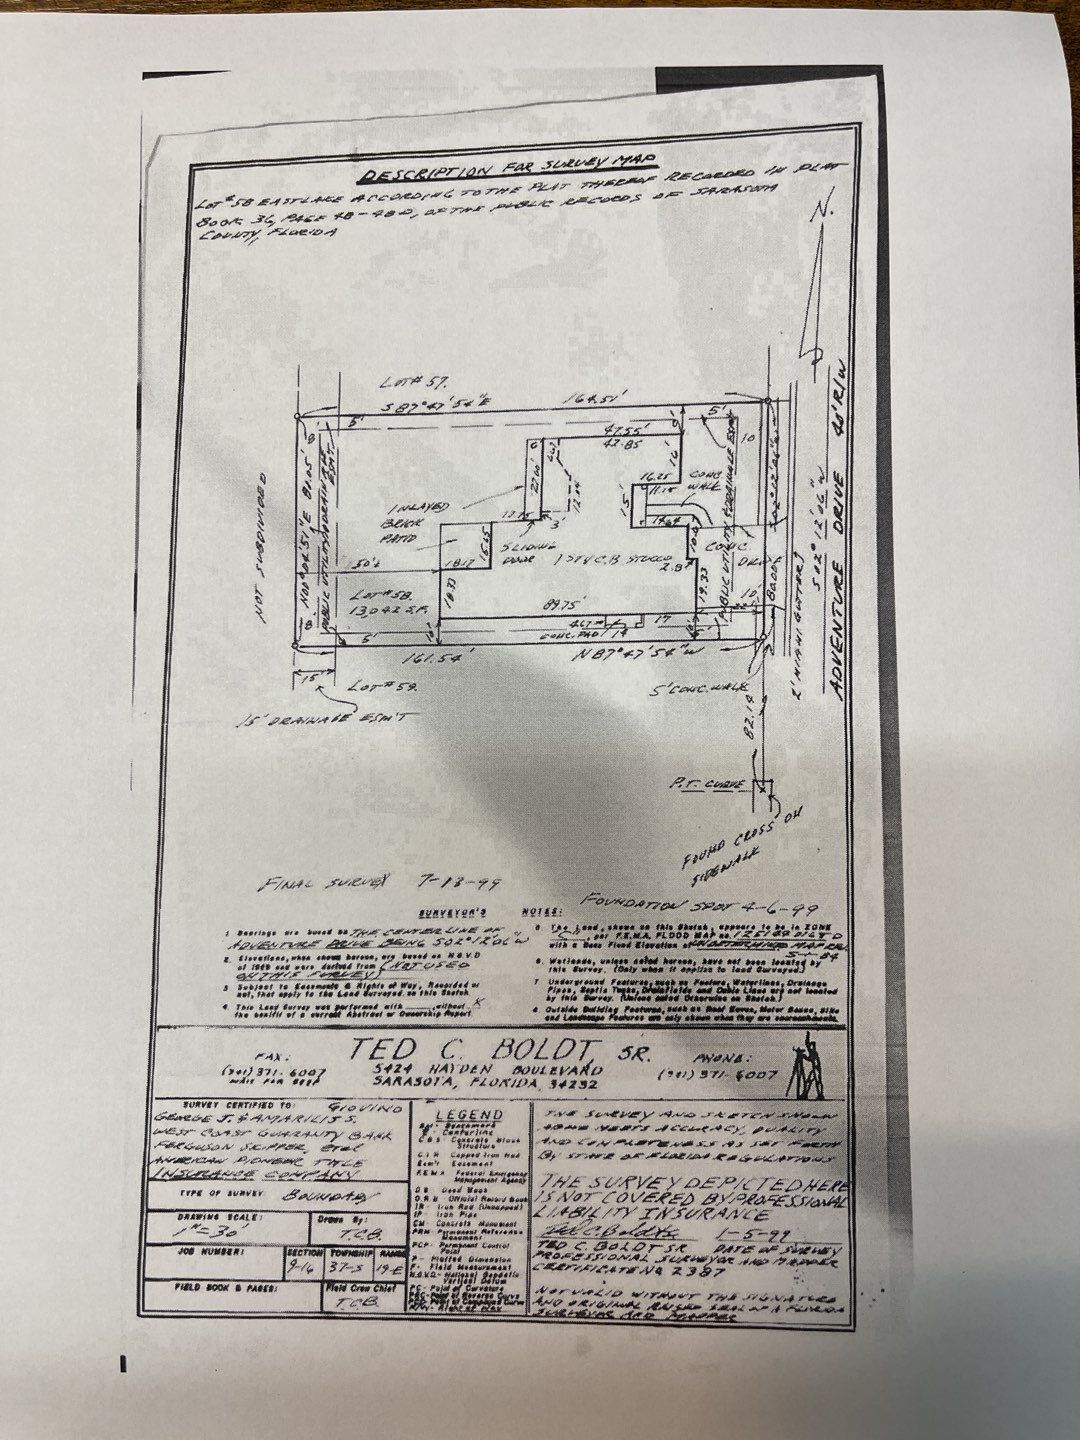 DESCRIPTION FOR SURVEY MAP
LOT #58 EASTLAKE ACCORDING TO THE PLAT THEREOF RECORDED IN PLAT
BOOK 36, PAGE 48-48D, OF THE PUBLIC RECORDS OF SARASOTA
COUNTY, FLORIDA
N.
LOT# 57.
S 87°47'54"E
164.51'
5'
47.55'
42.85
9'
5'
10
6'
27.00'
16'
16.25
11.15
CONC
WALK
15'
14.64
INLAYED
BRICK
PATIO
12.75
3'
SLIDING
DOOR
1 STY C.B. STUCCO
CONC
DRIVE
10.67
2.8'
15.65
18.17
18.33
19.33
50'±
LOT#58
13,042 S.F.
89.75'
4.67
17
CONC. PAD
14
10'
5'
6'
161.54'
N 87°47'54"W
NOT SUBDIVIDED
N00°04'51"E 80.05'
8'
8'
PUBLIC UTILITY & DRAINAGE
ESMT
PUBLIC UTILITY & DRAINAGE ESMT
S02°12'06"W
80.00'
2' MIAMI GUTTER
S 02° 12' 06" W
ADVENTURE DRIVE 48' R/W
15'
LOT#59.
15' DRAINAGE ESM'T
5' CONC. WALK
82.19'
P.T. CURVE
FOUND CROSS ON
SIDEWALK
FINAL SURVEY 7-13-99
FOUNDATION SPOT 4-6-99
SURVEYOR'S NOTES:
1 Bearings are based on THE CENTERLINE OF
ADVENTURE DRIVE BEING S02°12'06"W
2 Elevations, when shown hereon, are based on N.G.V.D
of 1929 and were derived from (NOT USED
ON THIS SURVEY)
3 Subject to Easements & Rights of Way, Recorded or
not, that apply to the Land Surveyed on this Sketch
4 This Land Survey was performed with ____, without X
the benifit of a current Abstract or Ownership Report
5 The Land, shown on this Sketch, appears to be in ZONE
"C", per F.E.M.A. FLOOD MAP no.
with a Base Flood Elevation of UNDETERMINED MAP REV.
6 Wetlands, unless noted hereon, have not been located by
this Survey. (Only when it applies to land Surveyed.)
7 Underground Features, such as Footers, Waterlines, Drainage
Pipes, Septic Tanks, Drainfields and Cable Lines are not located
by this Survey. (Unless noted Otherwise on Sketch)
Outside Building Features, such as Roof Eaves, Meter Boxes,
and Landscape Features are only shown when they are encroachments.
TED C. BOLDT, SR.
5424 HAYDEN BOULEVARD
SARASOTA, FLORIDA, 34232
FAX:
(941) 371-6007
WAIT FOR BEEP
PHONE:
(941) 371-6007
SURVEY CERTIFIED TO: GIOVINO
GEORGE J. & AMARILIS S.
WEST COAST GUARANTY BANK
FERGUSON SKIPPER, ETAL
AMERICAN PIONEER TITLE
INSURANCE COMPANY
TYPE OF SURVEY: BOUNDARY
DRAWING SCALE:
1"=30'
Drawn By:
T.C.B.
JOB NUMBER:
SECTION
9-16
TOWNSHIP
37-S
RANGE
19-E
FIELD BOOK & PAGES:
Field Crew Chief
T.C.B.
LEGEND
BM - Benchmark
Centerline
C B S Concrete Block
Structure
C I R Capped Iron Rod
Esm't Easement
F.E.M.A Federal Emergency
Management Agency
D B Deed Book
O.R.B Official Record Book
IR - Iron Rod (Uncapped)
IP - Iron Pipe
CM - Concrete Monument
PRM Permanent Reference
Monument
PCP Permanent Control
Point
P - Platted Dimension
F - Field Measurement
N.G.V.D - National Geodetic
Vertical Datum
PC - Point of Curvature
PRC - Point of Reverse Curve
R/W - Right of Way
THE SURVEY AND SKETCH SHOWN
ABOVE MEETS ACCURACY, QUALITY
AND COMPLETENESS AS SET FORTH
BY STATE OF FLORIDA REGULATIONS
THE SURVEY DEPICTED HERE
IS NOT COVERED BY PROFESSIONAL
LIABILITY INSURANCE
Ted C. Boldt Sr. 1-5-99
TED C. BOLDT SR. DATE OF SURVEY
PROFESSIONAL SURVEYOR AND MAPPER
CERTIFICATE NO. 2387
NOT VALID WITHOUT THE SIGNATURE
AND ORIGINAL RAISED SEAL OF A FLORIDA
SURVEYOR AND MAPPER